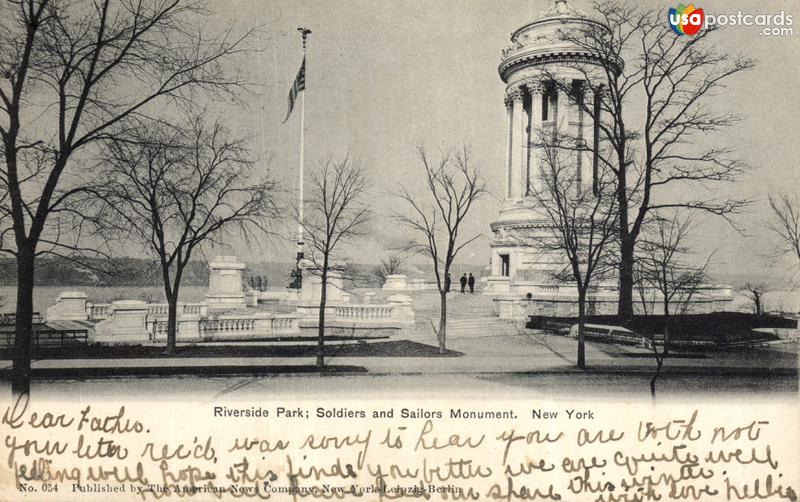 usapostcards
.com
Riverside Park; Soldiers and Sailors Monument. New York
Dear Father.
your letter rec'd, was sorry to hear you are both not
feeling well hope this finds you better we are quite well
No. 054 Published by The American News Company, New York-Leipzig-Berlin
share this winter
with love Nellie